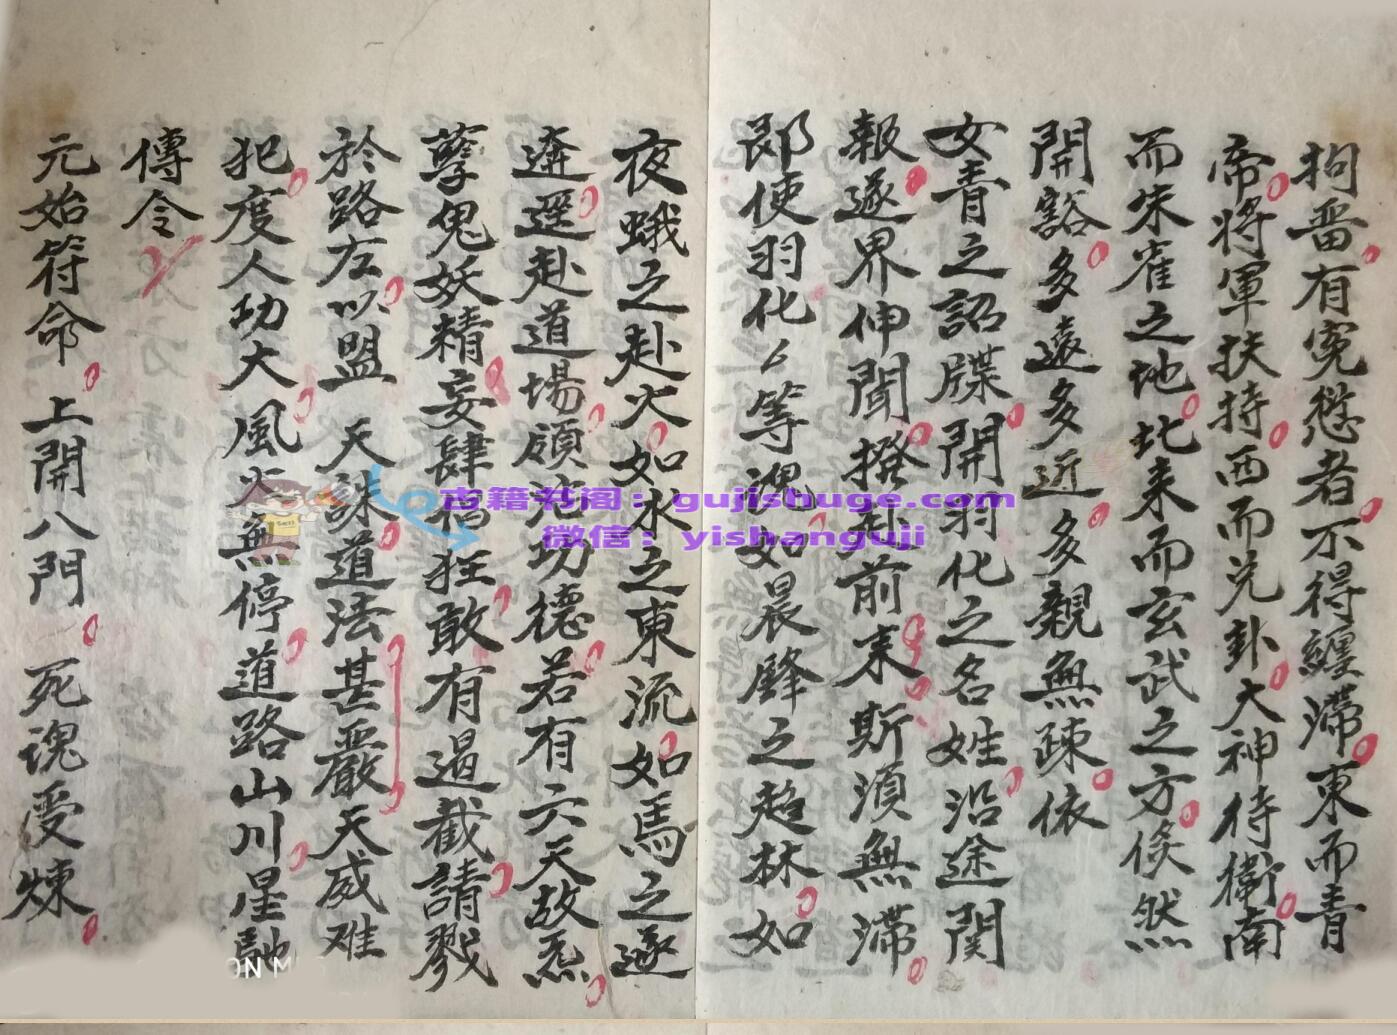 拘畱有寃愆者不得纏滯東而青
帝將軍扶持西而兊卦大神侍衛南
而朱雀之地北来而玄武之方倐然
開豁多多遠多近多親無踈依
女青之詔牒開羽化之名姓沿途関
報遂界伸聞撥赴前来斯湏無滯
即使羽化厶等魂如晨鋒之趂林如
夜蛾之赴火如水之東流如馬之逐
迸遅赴道場領沾功德若有六天故炁
孽鬼妖精妄肆猖狂敢有遏截請戮
於路左以盟天誅道法甚嚴天威难
犯度人功大風火無停道路山川星馳
傳令
元始符命上開八門死魂受煉
古籍书阁：gujishuge.com
微信：yishanguji